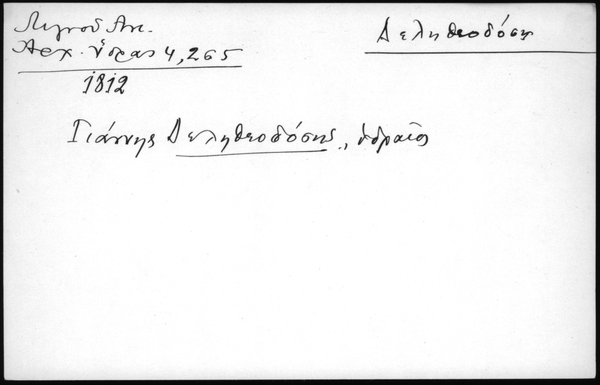 Λιγνοῦ Ἀν.
Ἀρχ. Ὕδρας 4, 265
1812
Δεληθεοδόση
Γιάννης Δεληθεοδόσης, ὑδραῖος